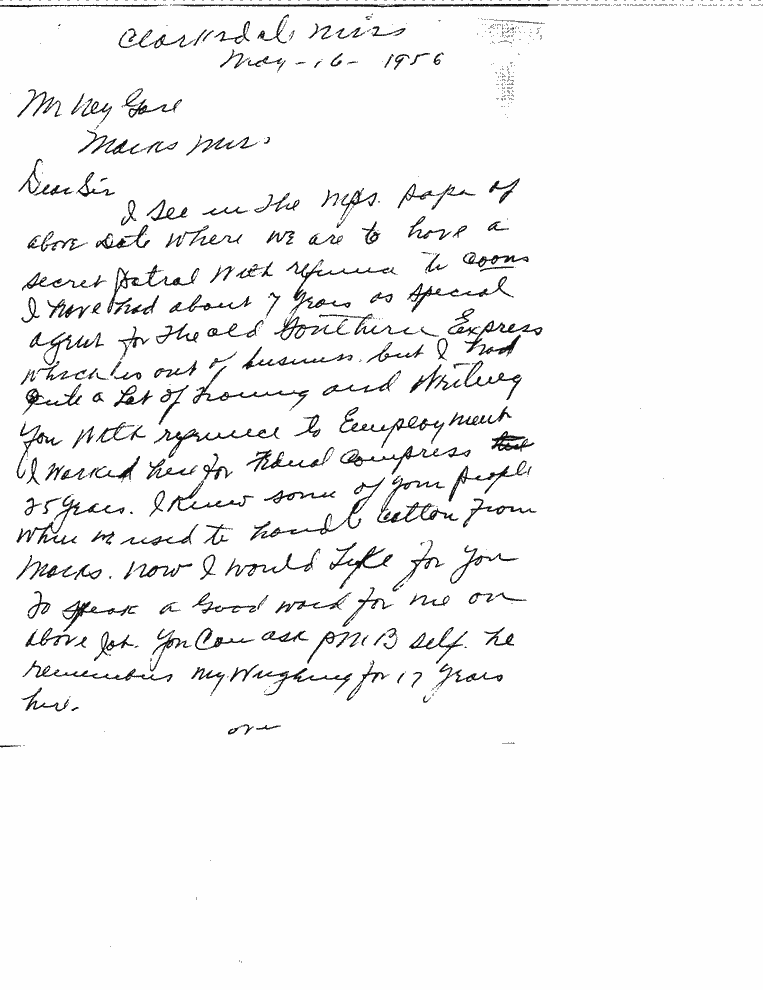 Clarksdale Miss
May-16-1956
Mr Ney Gore
Marks Miss
Dear Sir
I See in The Mps. paper of
above Date Where we are to have a
secret patrol With refrence to coons
I have had about 7 years as special
agent for The old Southern Express
which is out of business. but I had
quite a Lot of Training and Writing
You With refrence to Employment
I Worked here for Federal Compress
25 years. I knew some of your people
when we used to handle cotton From
Marks. Now I would Like for You
To speak a Good word for me on
above Job. You Can ask P M B self. he
remembers My Weighing for 17 years
here.
over